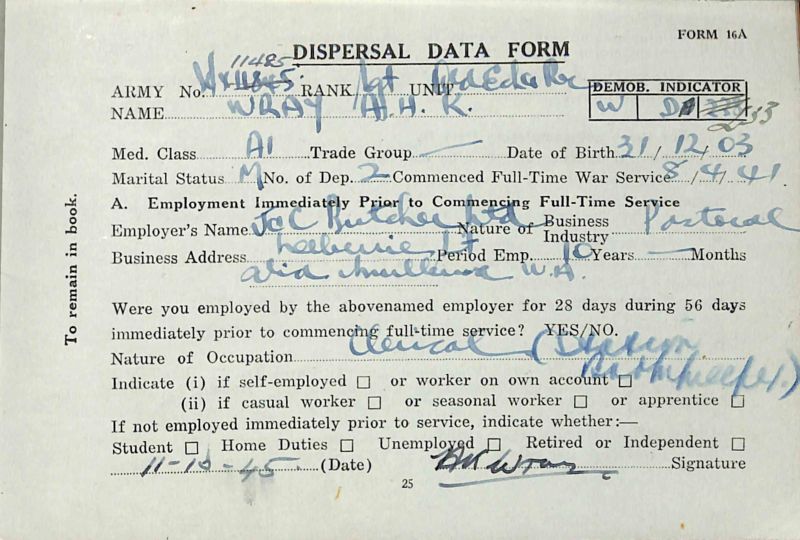 FORM 16A
DISPERSAL DATA FORM
11485
ARMY No. WX RANK Sgt UNIT
DEMOB. INDICATOR
NAME WRAY A. H. K.
W D
Med. Class A1 Trade Group — Date of Birth 31/12/03
Marital Status M No. of Dep. 2 Commenced Full-Time War Service 8/4/41
A. Employment Immediately Prior to Commencing Full-Time Service
Employer's Name J & C Butcher Ltd Nature of Business Industry Pastoral
Business Address Period Emp. 10 Years — Months
W.A.
Were you employed by the abovenamed employer for 28 days during 56 days
immediately prior to commencing full-time service? YES/NO.
Nature of Occupation Clerical (Station
Bookkeeper.)
Indicate (i) if self-employed □ or worker on own account □
(ii) if casual worker □ or seasonal worker □ or apprentice □
If not employed immediately prior to service, indicate whether:—
Student □ Home Duties □ Unemployed □ Retired or Independent □
11-10-45 (Date) Wray Signature
25
To remain in book.